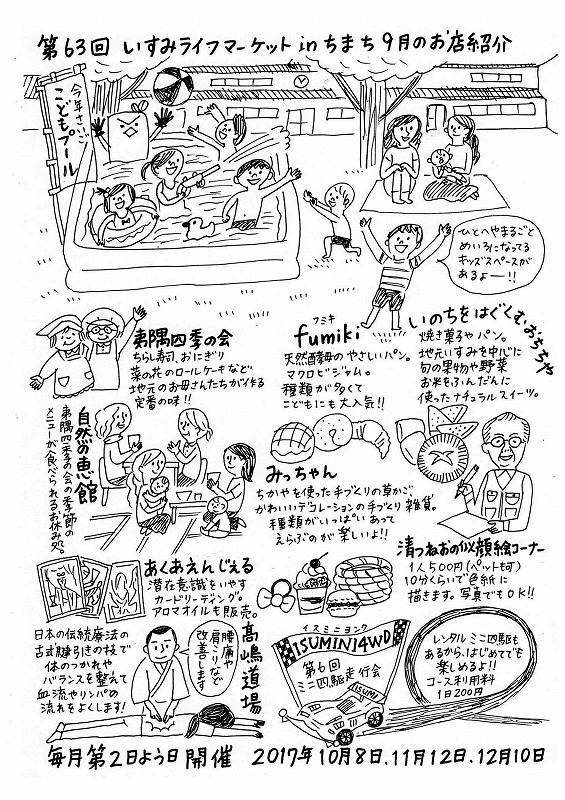 第63回 いすみライフマーケット in ちまち 9月のお店紹介
今年さいご
こどもプール
ひとへやまるごと
めいろになってる
キッズスペースが
あるよー!!
夷隅四季の会
ちらし寿司、おにぎり
菜の花のロールケーキなど
地元のお母さんたちが作る
定番の味!!
フミキ
fumiki
天然酵母のやさしいパン。
マクロビジャム。
種類が多くて
こどもにも大人気!!
いのちをはぐくむ・おちちや
焼き菓子やパン。
地元いすみを中心に
旬の果物や野菜
お米をふんだんに
使ったナチュラルスイーツ。
自然の恵館
夷隅四季の会の季節の
メニューが食べられるお休み処。
みっちゃん
ちがやを使った手づくりの草かご
かわいいデコレーションの手づくり雑貨。
種類がいっぱいあって
えらぶのが楽しいよ!!
清つねおの似顔絵コーナー
1人500円(ペット可)
10分くらいで色紙に
描きます。写真でもOK!!
あくあえんじぇる
潜在意識をいやす
カードリーディング。
アロマオイルも販売。
高嶋道場
日本の伝統療法の
古式腱引きの技で
体のつかれや
バランスを整えて
血流やリンパの
流れをよくします!
腰痛や
肩こりなど
改善します
イスミニヨンク
ISUMINI4WD
第6回
ミニ四駆走行会
ISUMI
レンタルミニ四駆も
あるから、はじめてでも
楽しめるよ!!
コース利用料
1日200円
毎月第2日よう日 開催 2017年10月8日、11月12日、12月10日